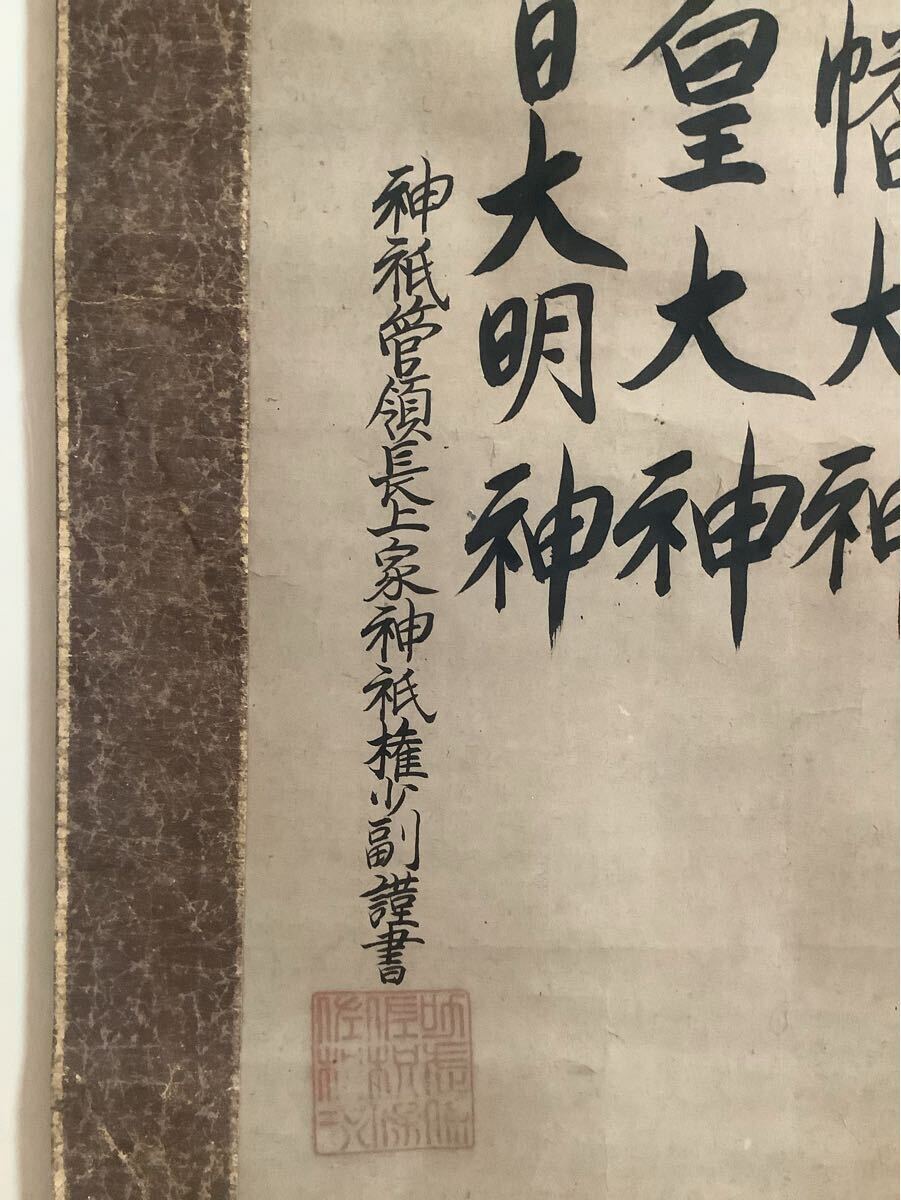 幡大神
皇大神
日大明神
神祇管領長上家神祇権少副謹書